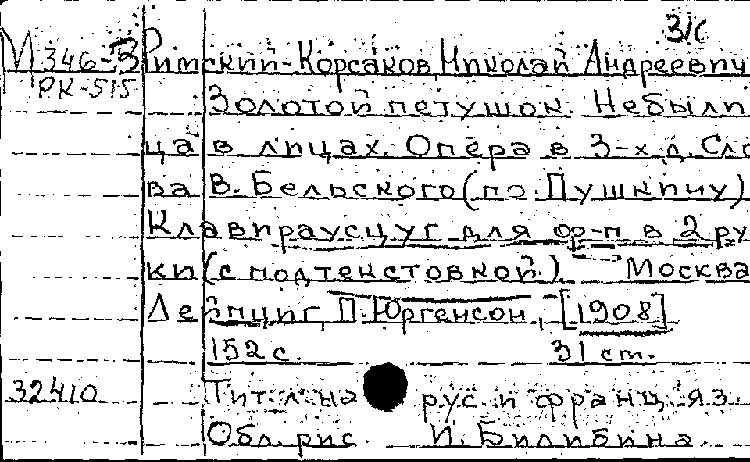 3/с
М 346-3 Римский-Корсаков, Николай Андреевич
РК-515 Золотой петушок. Небыли
ца в лицах. Опера в 3-х д. Сло
ва В. Бельского (по Пушкину)
Клавираусцуг для ф-п в 2 ру
ки (с подтекстовкой.) Москва
Лейпциг, П. Юргенсон, [1908]
152 с. 31 см.
32410 Тит. л. на рус. и франц. яз.
Обл. рис. И. Билибина